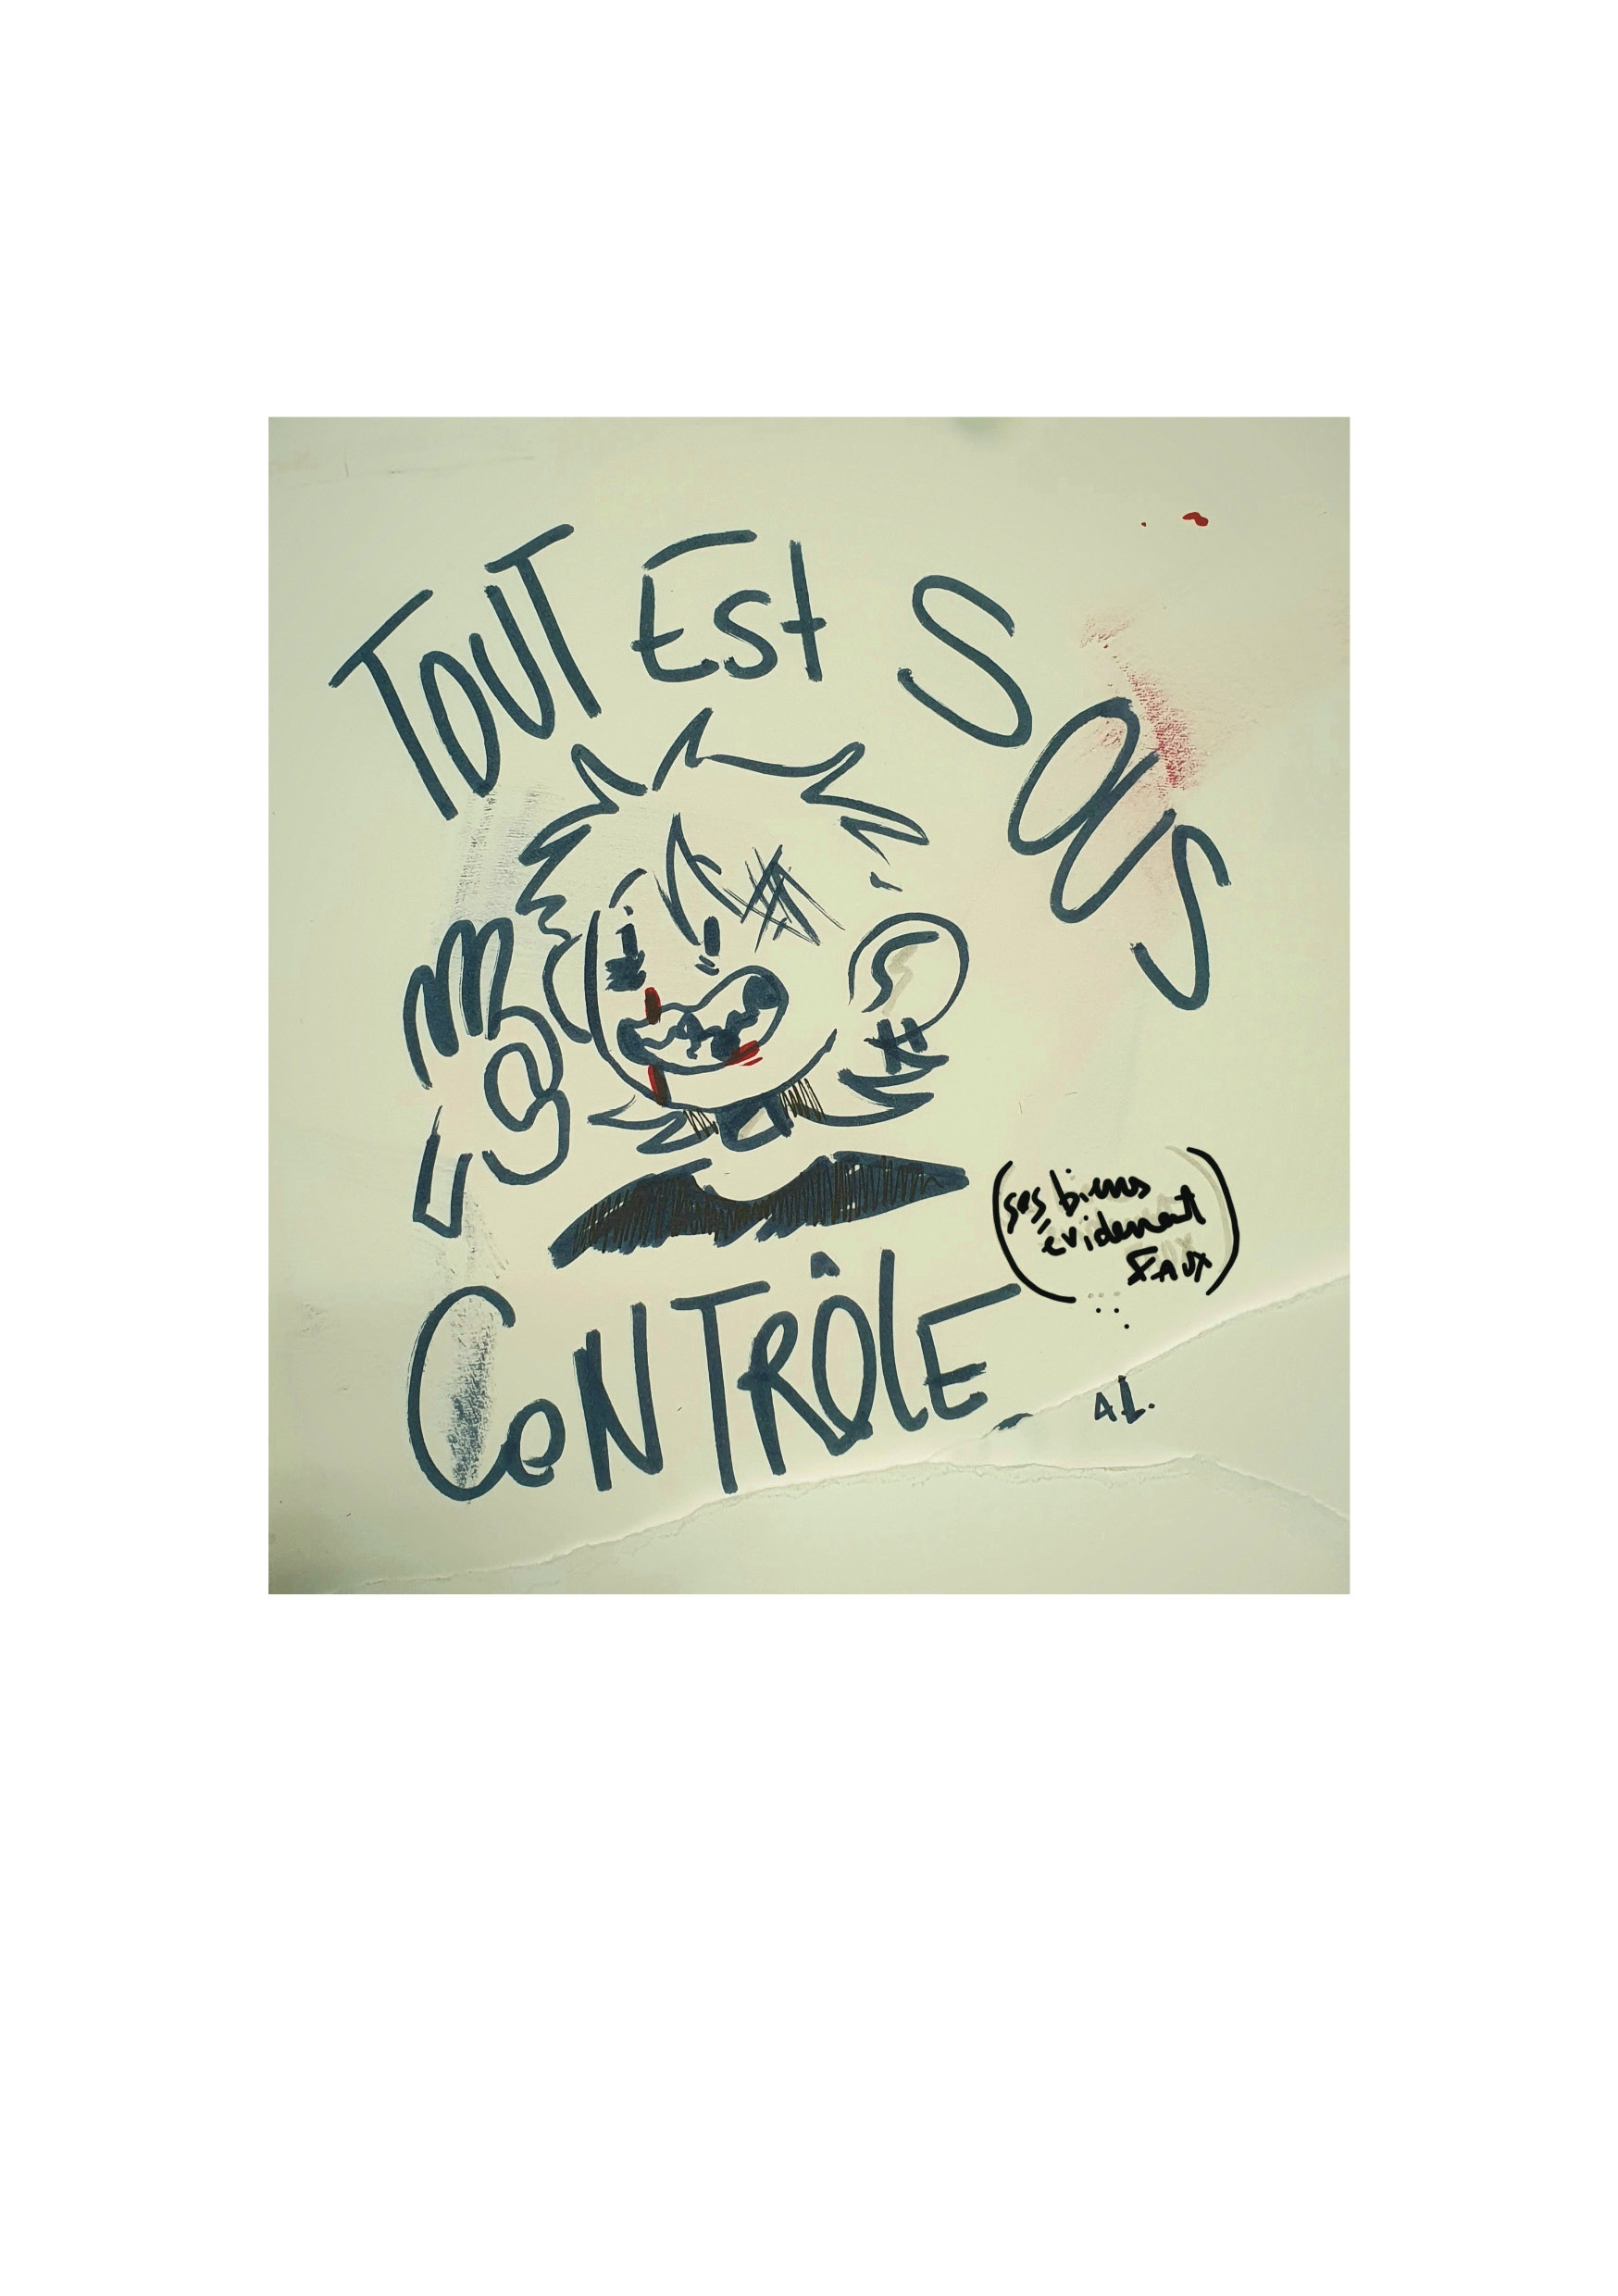 TOUT Est SOUS
CoNTRÔLE
(ses biens
évidenment
FAUX)
AL.